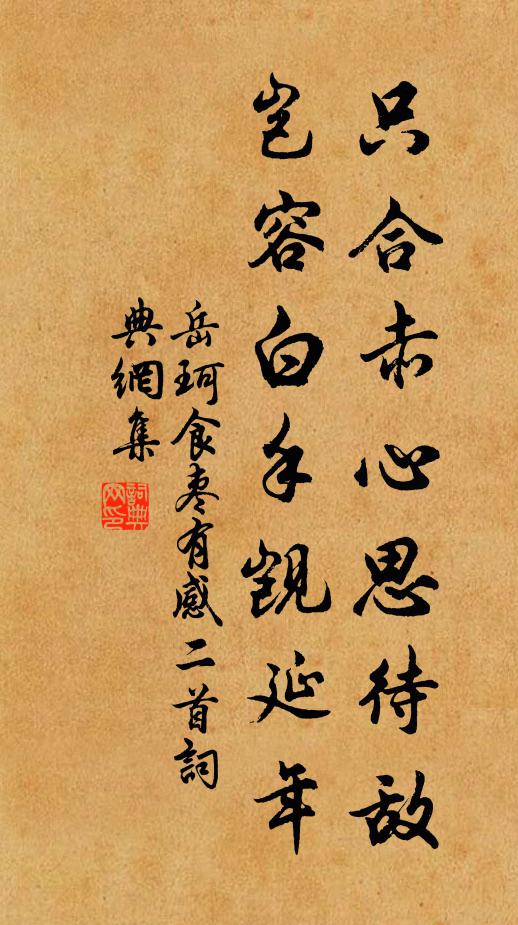 只合赤心思待敌
岂容白手觊延年
岳珂食枣有感二首詞
典網集
詞典